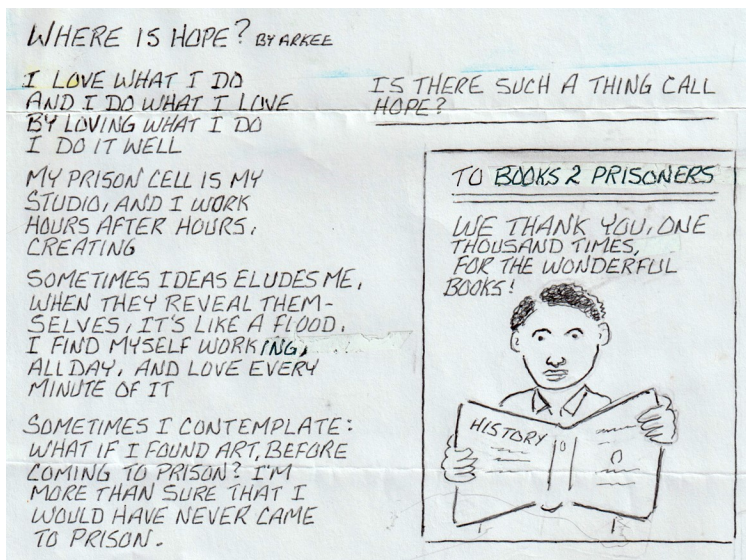 WHERE IS HOPE? BY ARKEE
I LOVE WHAT I DO
AND I DO WHAT I LOVE
BY LOVING WHAT I DO
I DO IT WELL
MY PRISON CELL IS MY
STUDIO, AND I WORK
HOURS AFTER HOURS,
CREATING
SOMETIMES IDEAS ELUDES ME,
WHEN THEY REVEAL THEM-
SELVES, IT'S LIKE A FLOOD.
I FIND MYSELF WORKING,
ALL DAY, AND LOVE EVERY
MINUTE OF IT
SOMETIMES I CONTEMPLATE:
WHAT IF I FOUND ART, BEFORE
COMING TO PRISON? I'M
MORE THAN SURE THAT I
WOULD HAVE NEVER CAME
TO PRISON.
IS THERE SUCH A THING CALL
HOPE?
TO BOOKS 2 PRISONERS
WE THANK YOU, ONE
THOUSAND TIMES,
FOR THE WONDERFUL
BOOKS!
HISTORY